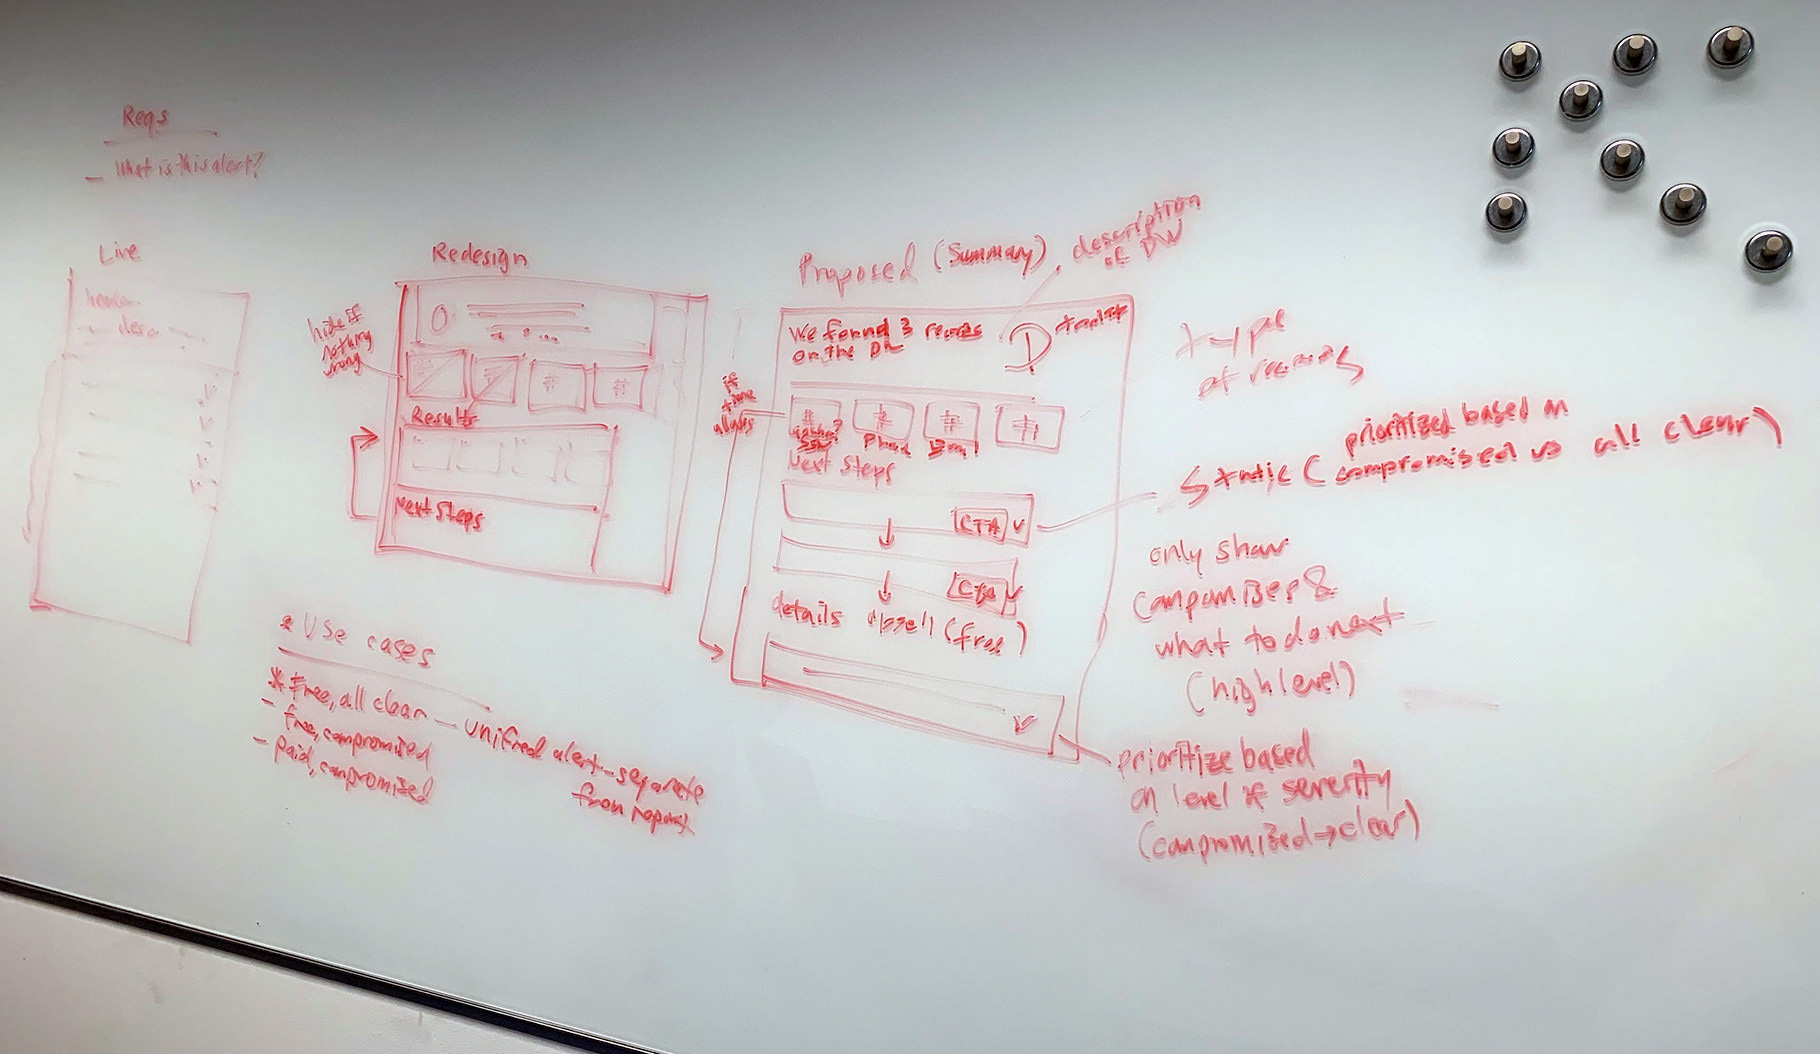 Reqs
- What is this alert?
Live
header
desc
Redesign
hide if
nothing
wrong
# #
Results
Next Steps
Proposed (Summary)
description
of DW
We found 3 records
on the
if
time
allows
# # # #
SSN Phone Email
Next Steps
CTA
CTA
details upsell (free)
type
of records
prioritized based on
Static (compromised vs all clear)
only show
compromises &
what to do next
(high level)
prioritize based
on level of severity
(compromised → clear)
* Use cases
* free, all clear - unified alert - separate
from report
- free, compromised
- paid, compromised